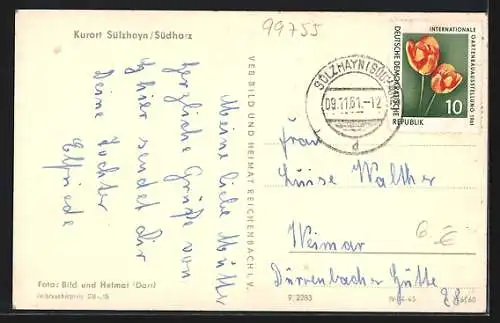 Kurort Sülzhayn/Südharz
99755
Meine liebe Mutter
herzliche Grüße von
hier sendet dir
Deine Tochter
Elfriede
VEB BILD UND HEIMAT REICHENBACH I. V.
SÜLZHAYN (SÜDHARZ)
09.11.61.-12
d
INTERNATIONALE
GARTENBAUAUSSTELLUNG 1961
DEUTSCHE DEMOKRATISCHE
REPUBLIK
10
Frau
Luise Walther
Weimar
6.€
Dürrenbacher Hütte
Foto: Bild und Heimat (Dorr)
9/2083